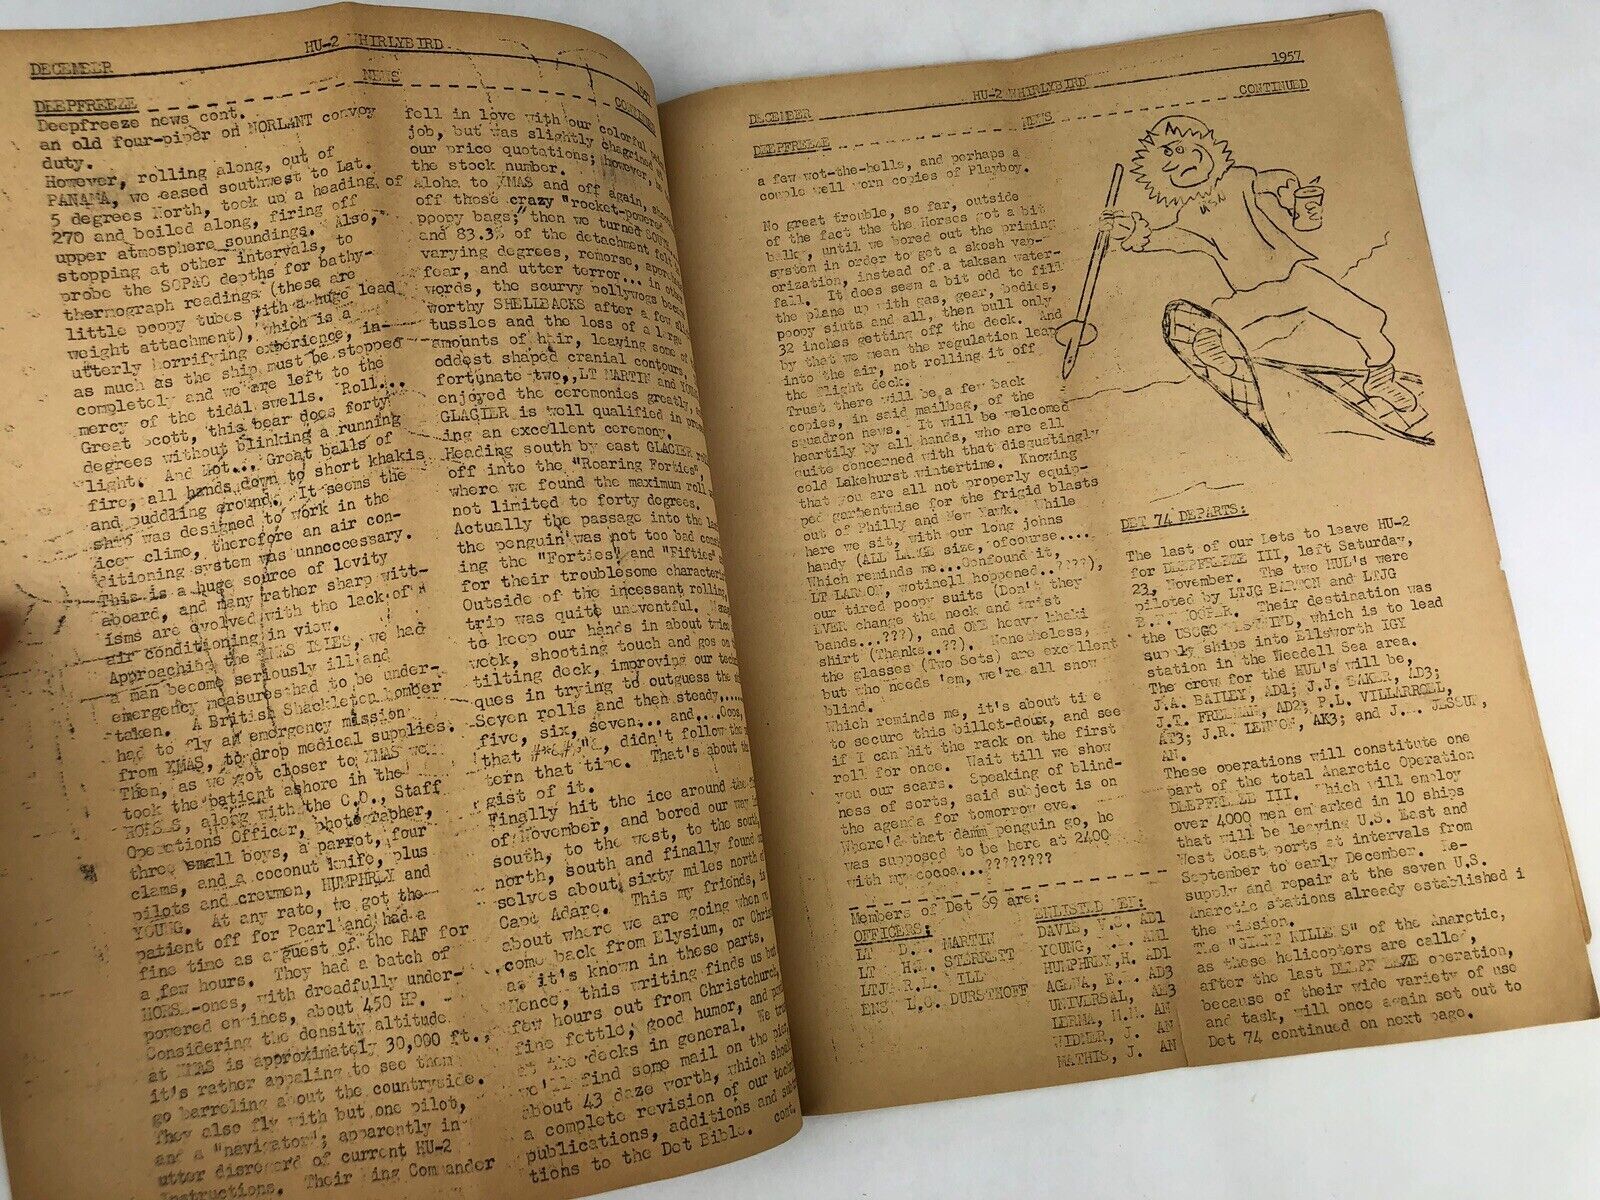 HU-2 WHIRLYBIRD
DECEMBER
NEWS
1957
DEEPFREEZE
CONTINUED
Deepfreeze news cont.
an old four-piper on NORLANT convoy
duty.
However, rolling along, out of
PANAMA, we eased southwest to Lat.
5 degrees North, took up a heading of
270 and boiled along, firing off
upper atmosphere soundings. Also,
stopping at other intervals, to
probe the SOPAC depths for bathy-
thermograph readings (these are
little poopy tubes with a huge lead
weight attachment), which is a
utterly horrifying experience, in-
as much as the ship must be stopped
completely and we are left to the
mercy of the tidal swells. Roll...
Great Scott, this bear does forty
degrees without blinking a running
light. And Hot... Great balls of
fire, all hands down to short khakis
and puddling around. It seems the
ship was designed to work in the
icey clime, therefore an air con-
ditioning system was unnecessary.
This is a huge source of levity
aboard, and many rather sharp witt-
isms are evolved with the lack of
air conditioning in view.
Approaching the XMAS ISLES, we had
a man become seriously ill and
emergency measures had to be under-
taken. A British Shackleton bomber
had to fly an emergency mission
from XMAS, to drop medical supplies.
Then, as we got closer to XMAS we
took the patient ashore in the
HORSES, along with the C.O., Staff
Operations Officer, photographer,
three small boys, a parrot, four
clams, and a coconut knife, plus
pilots and crewmen, HUMPHREY and
YOUNG. At any rate, we got the
patient off for Pearl and had a
fine time as a guest of the RAF for
a few hours. They had a batch of
HORSE-ones, with dreadfully under-
powered engines, about 450 HP.
Considering the density altitude
at XMAS is approximately 30,000 ft.,
it's rather appaling to see them
go barreling about the countryside.
They also fly with but one pilot,
and a "navigator"; apparently in
utter disregard of current HU-2
instructions. Their Wing Commander
fell in love with our colorful
job, but was slightly chagrined
our price quotations; however,
the stock number.
Aloha to XMAS and off again,
off those crazy "rocket-powered
poopy bags;" then we turned SOUTH
and 83.3% of the detachment felt
varying degrees, remorse,
fear, and utter terror... in other
words, the scurvy pollywogs became
worthy SHELLBACKS after a few
tussles and the loss of a large
amounts of hair, leaving some of
oddest shaped cranial contours.
fortunate two,,LT MARTIN and YOUNG
enjoyed the ceremonies greatly,
GLACIER is well qualified in
ing an excellent ceremony.
Heading south by east GLACIER
off into the "Roaring Forties",
where we found the maximum roll
not limited to forty degrees.
Actually the passage into the land
the penguin was not too bad
ing the "Forties" and "Fifties"
for their troublesome
Outside of the incessant rolling,
trip was quite uneventful.
to keep our hands in about twice
week, shooting touch and gos on
tilting deck, improving our
ques in trying to outguess the
Seven rolls and then steady,....
five, six, seven... and....Oops,
that #*&#"&, didn't follow the
tern that time. That's about the
gist of it.
Finally hit the ice around the
of November, and bored our way
south, to the west, to the south,
north, south and finally found
selves about sixty miles north
Cape Adare. This my friends, is
about where we are going when
come back from Elysium, or
as it's known in these parts.
Hence, this writing finds us
few hours out from Christchurch,
fine fettle, good humor, and
at the decks in general. We
we'll find some mail on the pier,
about 43 daze worth, which
a complete revision of our
publications, additions and
tions to the Det Bible. cont.
1957
HU-2 WHIRLYBIRD
DECEMBER
NEWS
CONTINUED
DEEPFREEZE
a few wot-the-hells, and perhaps a
couple well worn copies of Playboy.
No great trouble, so far, outside
of the fact the the Horses got a bit
balky, until we bored out the priming
system in order to get a skosh vap-
orization, instead of a taksan water-
fall. It does seem a bit odd to fill
the plane up with gas, gear, bodies,
poopy siuts and all, then pull only
32 inches getting off the deck. And
by that we mean the regulation leap
into the air, not rolling it off
the flight deck.
Trust there will be a few back
copies, in said mailbag, of the
squadron news. It will be welcomed
heartily by all hands, who are all
quite concerned with that disgustingly
cold Lakehurst wintertime. Knowing
that you are all not properly equip-
ped garbentwise for the frigid blasts
out of Philly and New Yawk. While
here we sit, with our long johns
handy (ALL LARGE size, ofcourse....
Which reminds me...Confound it,
LT LARSON, wotinell hoppened..????),
our tired poopy suits (Don't they
EVER change the neck and wrist
bands...???), and ONE heavy khaki
shirt (Thanks..??). Nonetheless,
the glasses (Two Sets) are excellent
but who needs 'em, we're all snow
blind.
Which reminds me, it's about time
to secure this billet-doux, and see
if I can hit the rack on the first
roll for once. Wait till we show
you our scars. Speaking of blind-
ness of sorts, said subject is on
the agenda for tomorrow eve.
Where'd that damm penguin go, he
was supposed to be here at 2400
with my cocoa...????????
Members of Det 69 are:
OFFICERS:
LT D.. MARTIN
LT H.. STERRETT
LTJG R.L.
ENS L.O. DURSTHOFF
ENLISTED MEN:
DAVIS, V.S. AD1
YOUNG, AM1
HUMPHREY,H. AD1
AD3
UNIVERSAL, AE3
LERMA, M.M. AN
WIDNER, J. AN
MATHIS, J. AN
USN
DET 74 DEPARTS:
The last of our Lets to leave HU-2
for DEEPFREEZE III, left Saturday,
23, November. The two HUL's were
piloted by LTJG BARTON and LTJG
B.F. HOOPER. Their destination was
the USCGC WESTWIND, which is to lead
supply ships into Ellsworth IGY
station in the Weedell Sea area.
The crew for the HUL's will be,
J.A. BAILEY, AD1; J.J. BAKER, AD3;
J.T. FREEMAN, AD2; P.L. VILLARROEL,
AT3; J.R. LENNON, AK3; and J.. JESSUP,
AN.
These operations will constitute one
part of the total Anarctic Operation
DEEPFREEZE III. Which will employ
over 4000 men emarked in 10 ships
that will be leaving U.S. East and
West Coast ports at intervals from
September to early December. Re-
supply and repair at the seven U.S.
Anarctic stations already established i
the mission.
The "GIANT KILLERS" of the Anarctic,
as these helicopters are called,
after the last DEEPFREEZE operation,
because of their wide variety of use
and task, will once again set out to
Det 74 continued on next page.